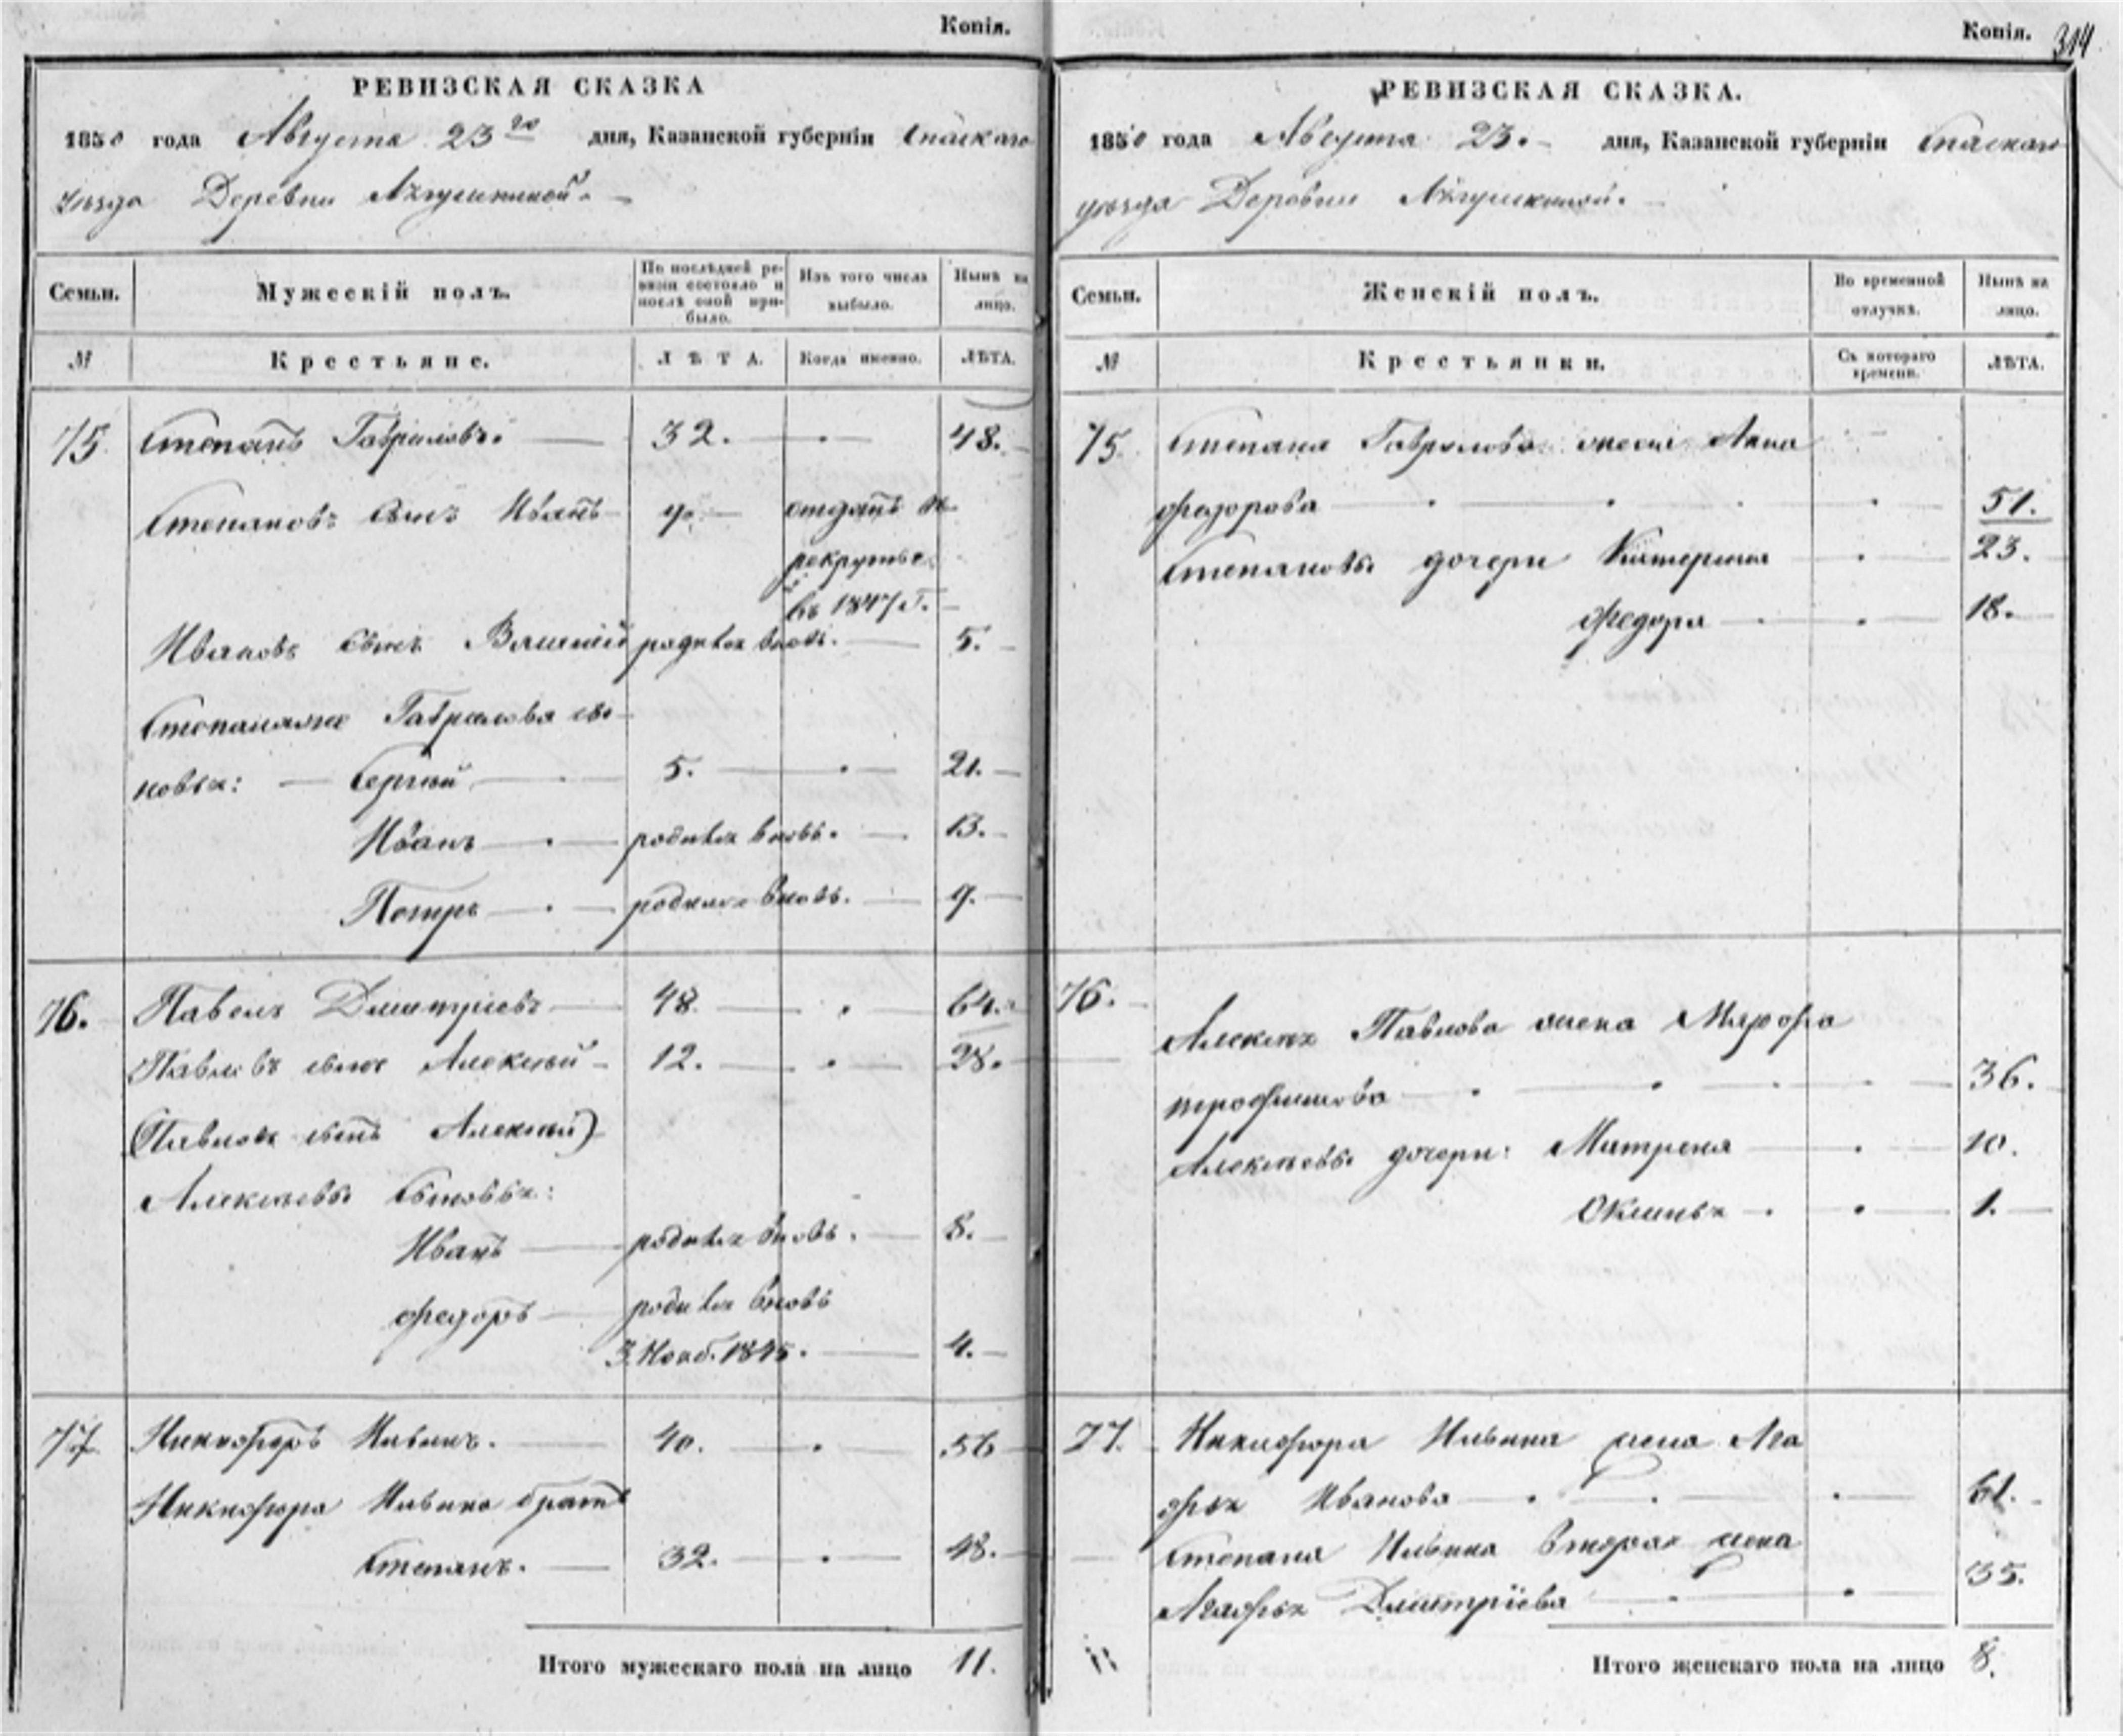 Копія.
РЕВИЗСКАЯ СКАЗКА
1850 года Августа 23го дня, Казанской губерніи Спаскаго
уѣзда Деревни
Семьи. Мужескій полъ. По послѣдней ревизіи состояло и послѣ оной прибыло. Изъ того числа выбыло. Нынѣ на лицо.
№ Крестьяне. ЛѢТА. Когда именно. ЛѢТА.
75 Степанъ Гавриловъ. 32. 48.
Степановъ сынъ Иванъ 9. отданъ въ
рекруты
въ 1847 г.
Ивановъ сынъ Василій родился вновь. 5.
Степана Гаврилова сы-
новья: Сергей 5. 21.
Иванъ родился вновь. 13.
Петръ родился вновь. 9.
76. Павелъ Дмитріевъ 48 64.
Павловъ сынъ Алексѣй 12. 28.
(Павловъ сынъ Алексѣй)
Алексѣевы сыновья:
Иванъ родился вновь. 8.
Федоръ родился вновь
3. Нояб. 1845. 4.
77 Никифоръ Ильинъ. 40. 56
Никифора Ильина братъ
Степанъ. 32. 48.
Итого мужескаго пола на лицо 11.
Копія. 314
РЕВИЗСКАЯ СКАЗКА.
1850 года Августа 23. дня, Казанской губерніи Спаскаго
уѣзда Деревни
Семьи. Женскій полъ. Во временной отлучкѣ. Нынѣ на лицо.
№ Крестьянки. Съ котораго времени. ЛѢТА.
75. Степана Гаврилова жена Анна
Федорова 51.
Степановы дочери Катерина 23.
Федора 18.
76. Алексѣя Павлова жена
Трофимова 36.
Алексѣевы дочери: Матрена 10.
Оксинья 1.
77. Никифора Ильина жена Ма
фья Иванова 61.
Степана Ильина вторая жена
Агафья Дмитріева 35.
Итого женскаго пола на лицо 8.